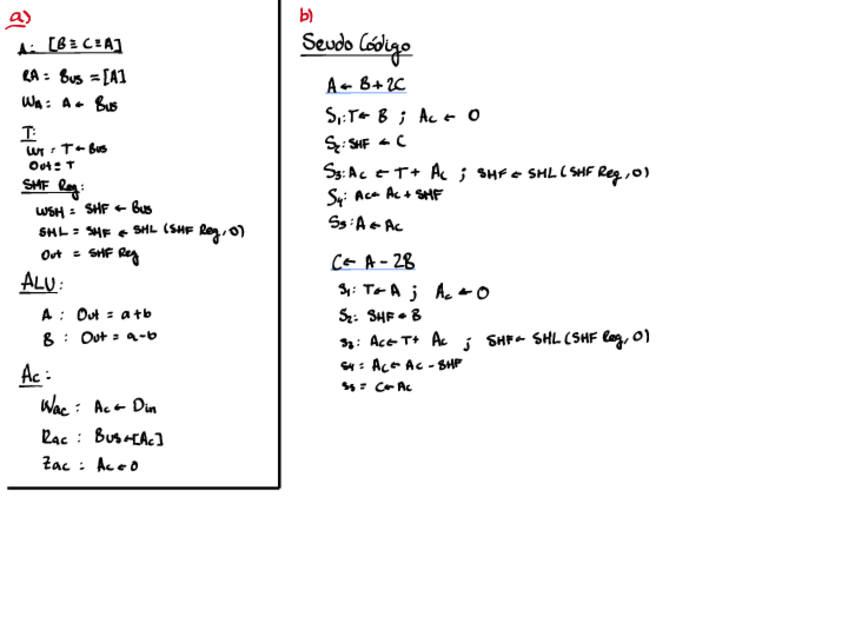 a)
A: [B ≡ C ≡ A]
RA = Bus = [A]
WA: A ← Bus
T:
WT: T ← Bus
Out = T
SHF Reg:
WSH = SHF ← Bus
SHL = SHF ← SHL (SHF Reg, 0)
Out = SHF Reg
ALU:
A : Out = a+b
B : Out = a-b
Ac:
Wac : Ac ← Din
Rac : Bus ← [Ac]
Zac : Ac ← 0
b)
Seudo Código
A ← B + 2C
S1: T ← B ; Ac ← 0
S2: SHF ← C
S3: Ac ← T + Ac ; SHF ← SHL (SHF Reg, 0)
S4: Ac ← Ac + SHF
S5: A ← Ac
C ← A - 2B
S1: T ← A ; Ac ← 0
S2: SHF ← B
S3: Ac ← T + Ac ; SHF ← SHL (SHF Reg, 0)
S4 = Ac ← Ac - SHF
S5 = C ← Ac